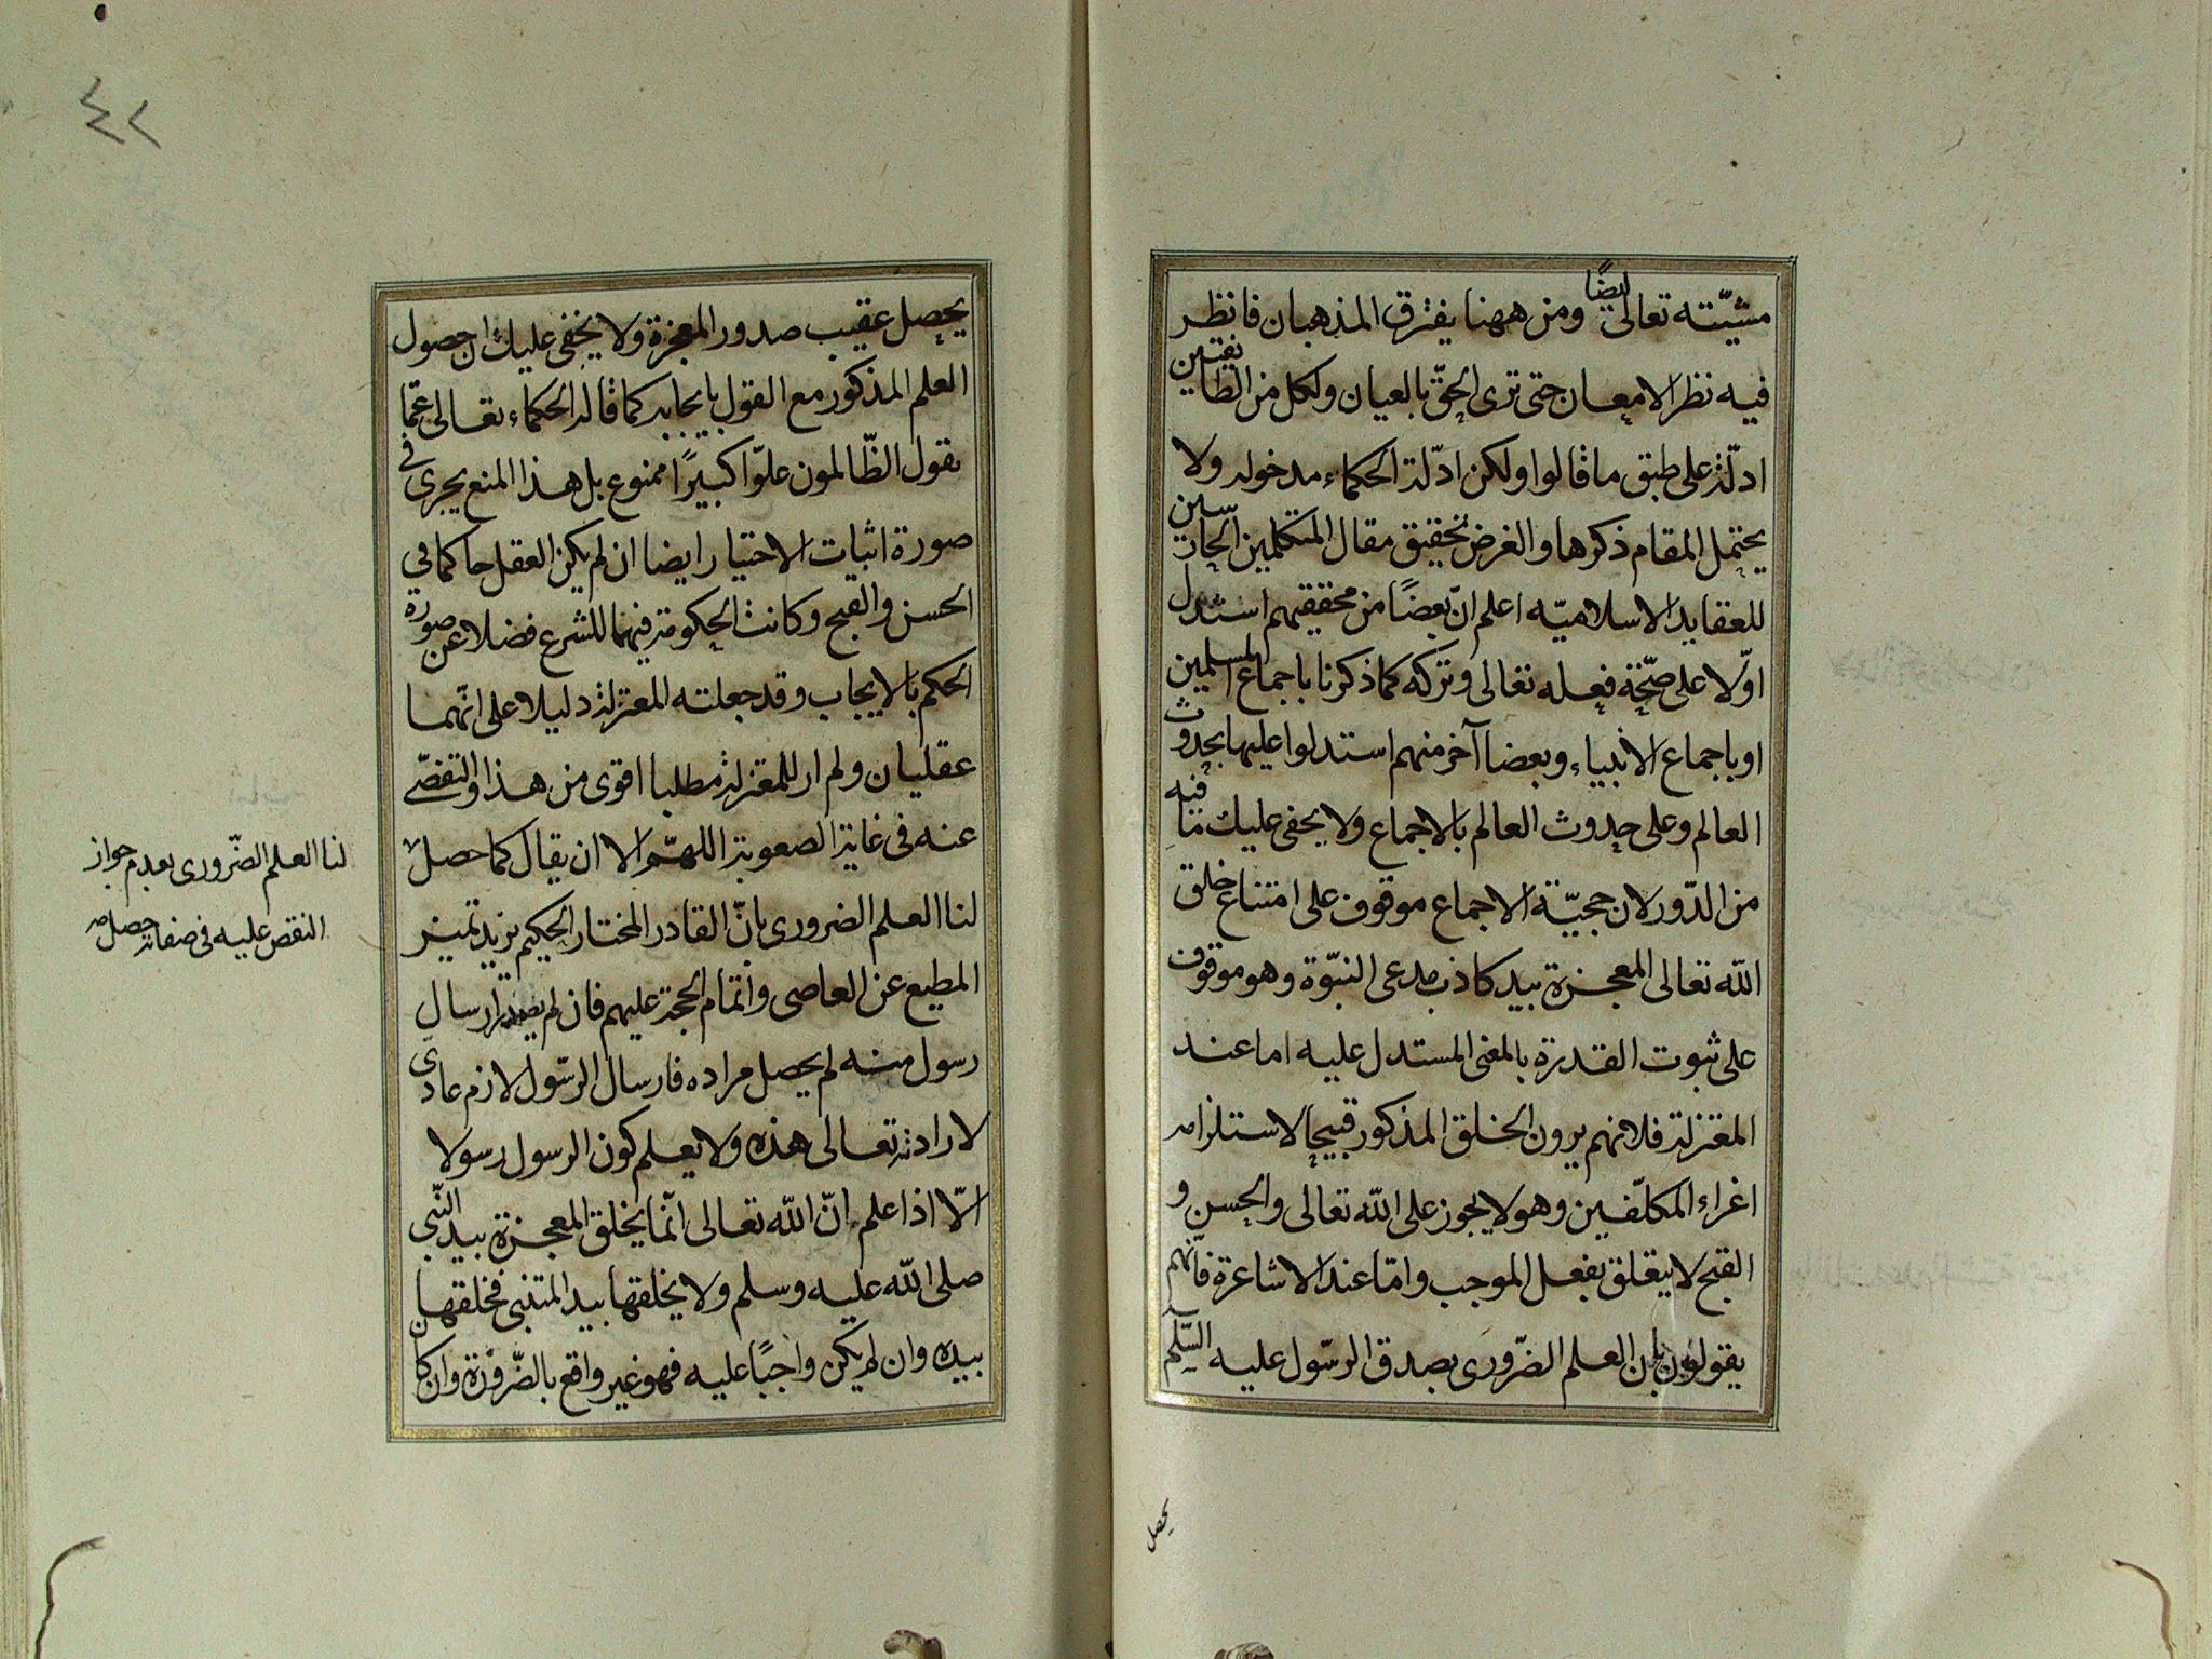 مشيّته تعالى ايضًا ومن ههنا يفترق المذهبان فانظر
فيه نظر الامعان حتى ترى الحقّ بالعيان ولكل من الطائفتين
ادلّة على طبق ما قالوا ولكن ادّلة الحكماء مدخوله ولا
يحتمل المقام ذكرها والغرض تحقيق مقال المتكلمين الحارسين
للعقايد الاسلاميّه اعلم انّ بعضًا من محققيهم استدل
اوّلا على صحّة فعله تعالى وتركه كما ذكرنا باجماع المسلمين
او باجماع الانبياء وبعضا آخر منهم استدلوا عليها بحدوث
العالم وعلى حدوث العالم بالاجماع ولا يخفى عليك ما فيه
من الدّور لان حجيّة الاجماع موقوف على امتناع خلق
الله تعالى المعجزة بيد كاذب مدعى النبوّة وهو موقوف
على ثبوت القدرة بالمعنى المستدل عليه اما عند
المعتزلة فلانهم يرون الخلق المذكور قبيحا لاستلزامه
اغراء المكلّفين وهو لا يجوز على الله تعالى والحسن و
القبح لا يتعلق بفعل الموجب وامّا عند الاشاعرة فانّهم
يقولون بان العلم الضّرورى بصدق الرسّول عليه السّلم
يحصل
٤٢
يحصل عقيب صدور المعجزة ولا يخفى عليك ان حصول
العلم المذكور مع القول بايجابه كما قاله الحكماء تعالى عمّا
يقول الظّالمون علوّا كبيرًا ممنوع بل هذا المنع يجرى فى
صورة اثبات الاختيار ايضا ان لم يكن العقل حاكما في
الحسن والقبح وكانت الحكومة فيهما للشرع فضلا عن صورة
الحكم بالايجاب وقد جعلته المعتزلة دليلا على انّهما
عقليان ولم ار للمعتزلة مطلبا اقوى من هذا والتفصّى
عنه فى غاية الصعوبة اللهمّ الا ان يقال كما حصل
لنا العلم الضرورى بانّ القادر المختار الحكيم يريد تميز
المطيع عن العاصى واتمام الحجة عليهم فان لم يصدر ارسال
رسول منه لم يحصل مراده فارسال الرسّول لازم عادى
لارادته تعالى هذه ولا يعلم كون الرسول رسولا
الّا اذا علم انّ الله تعالى انّما يخلق المعجزة بيد النّبى
صلى الله عليه وسلم ولا يخلقها بيد المتنبى فخلقها
بيده وان لم يكن واجبًا عليه فهو غير واقع بالضّرورة وان كان
لنا العلم الضّرورى بعدم جواز
النقص عليه فى صفاته حصل